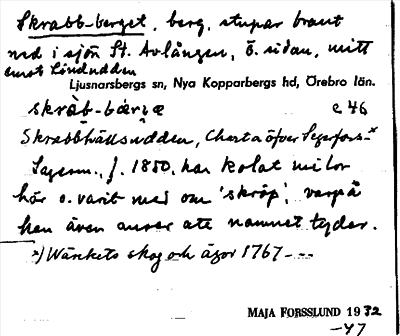 Skrabb-berget, berg, stupar brant
ned i sjön St. Avlången, Ö. sidan, mitt
emot Lindudden
Ljusnarsbergs sn, Nya Kopparbergs hd, Örebro län.
skràb-bærjæ c 46
Skrabbhällsudden, Charta öfver Segerfors-x
Sagesm., f. 1850, har kolat milor
här o. varit med om 'skråp', varpå
han även anser att namnet tyder.
x) Wärckets skog och ägor 1767 - - -
MAJA FORSSLUND 1932
-47